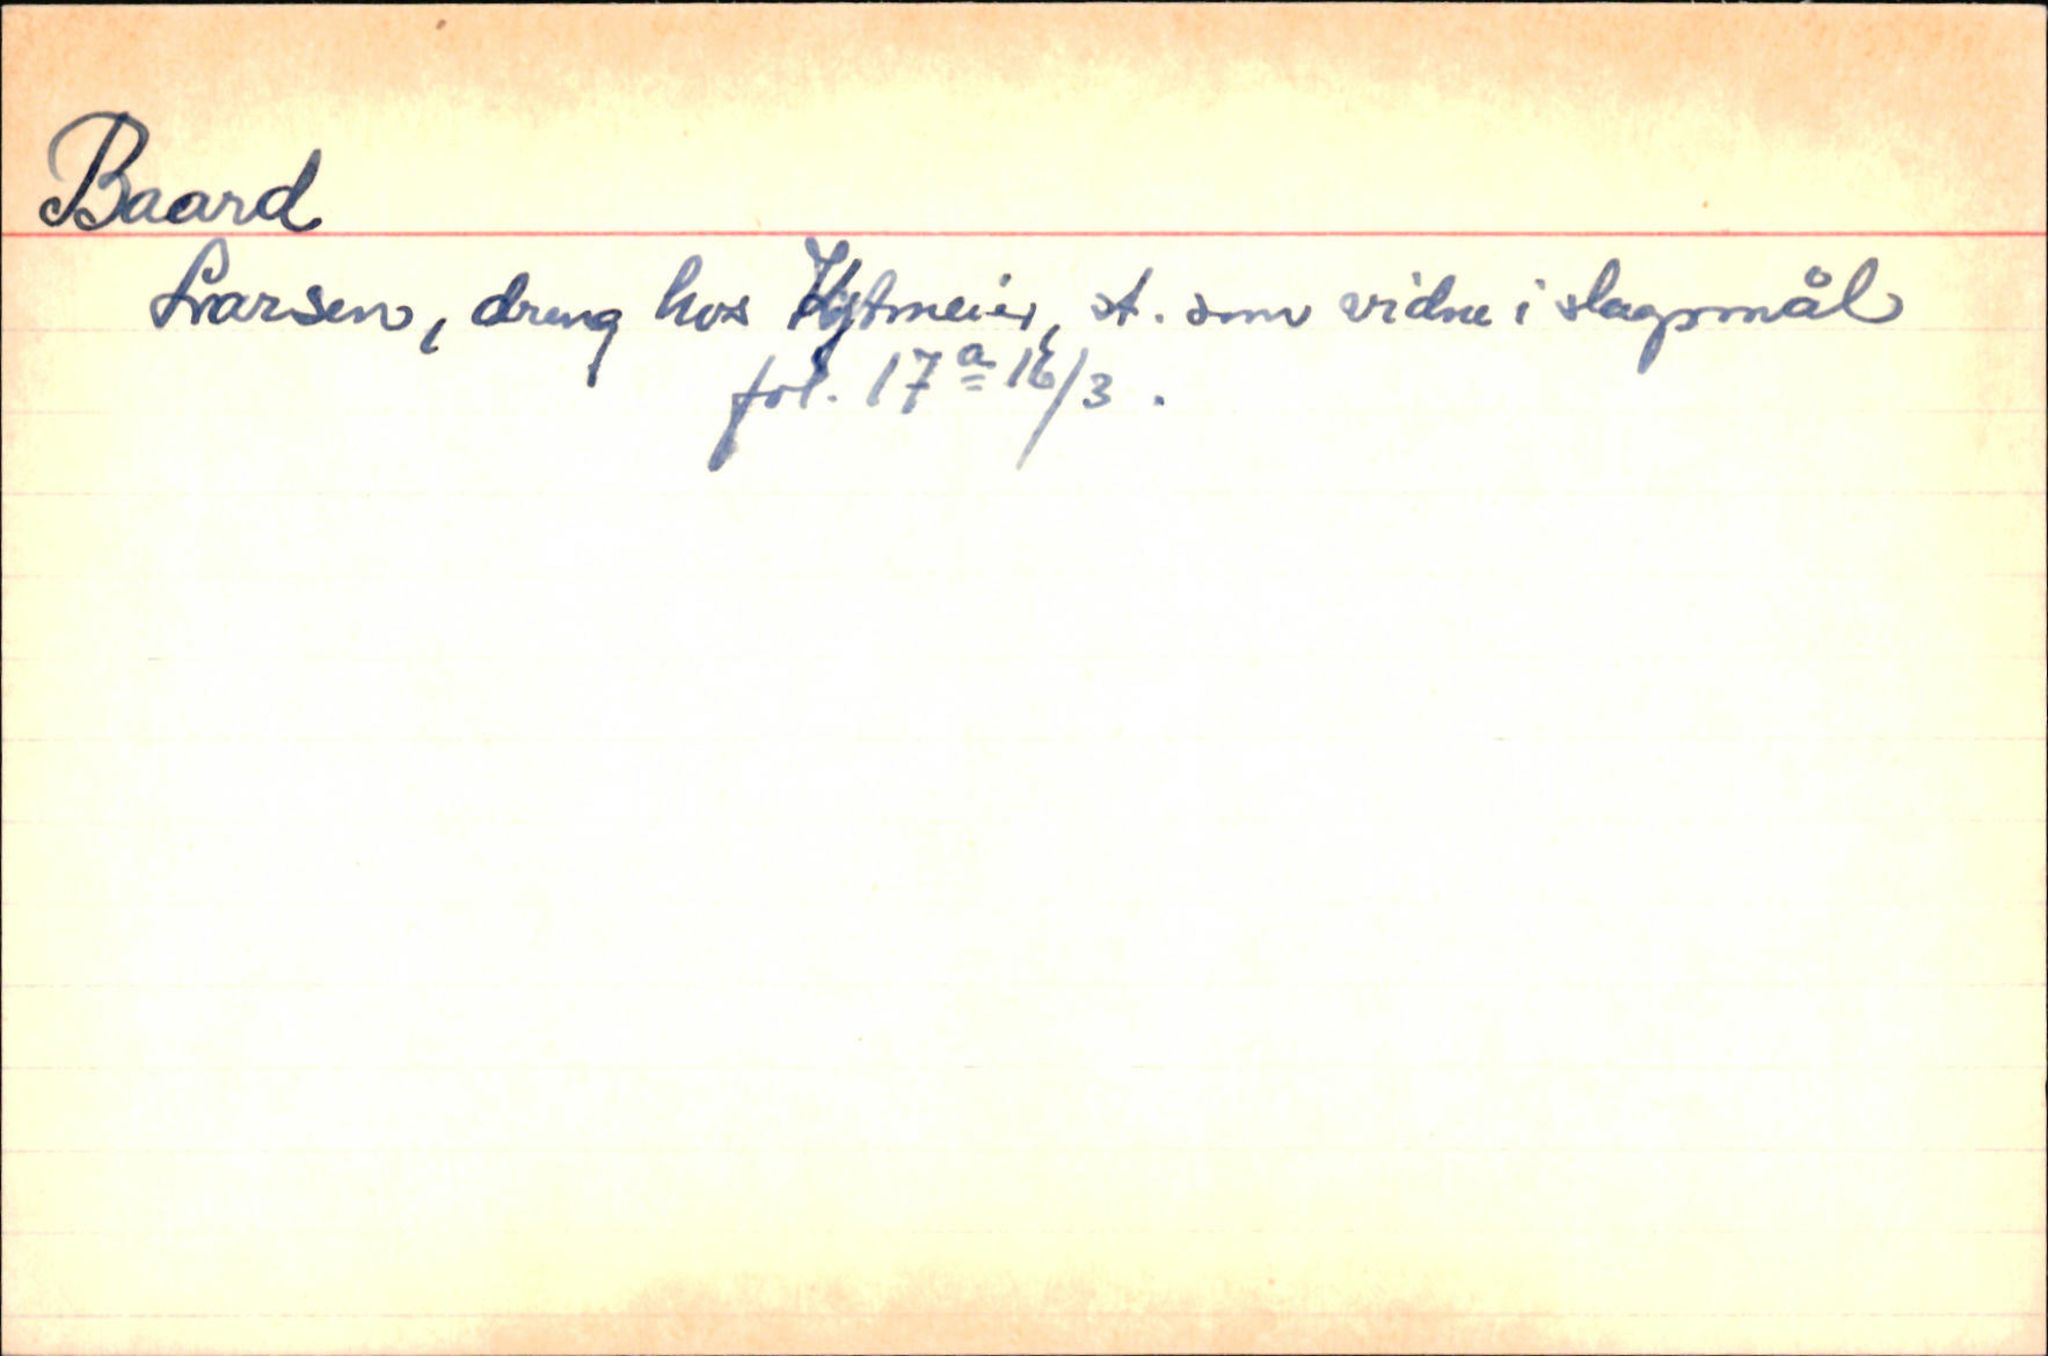 Baard
Larsen, dreng hos st. som vidne i slagsmål
fol. 17a 16/3.